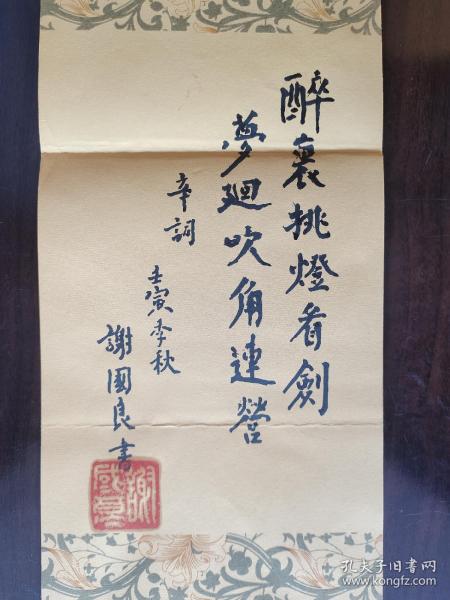 醉裏挑燈看劍
夢廻吹角連營
辛詞
壬寅季秋
謝國良書
孔夫子旧书网
www.kongfz.com